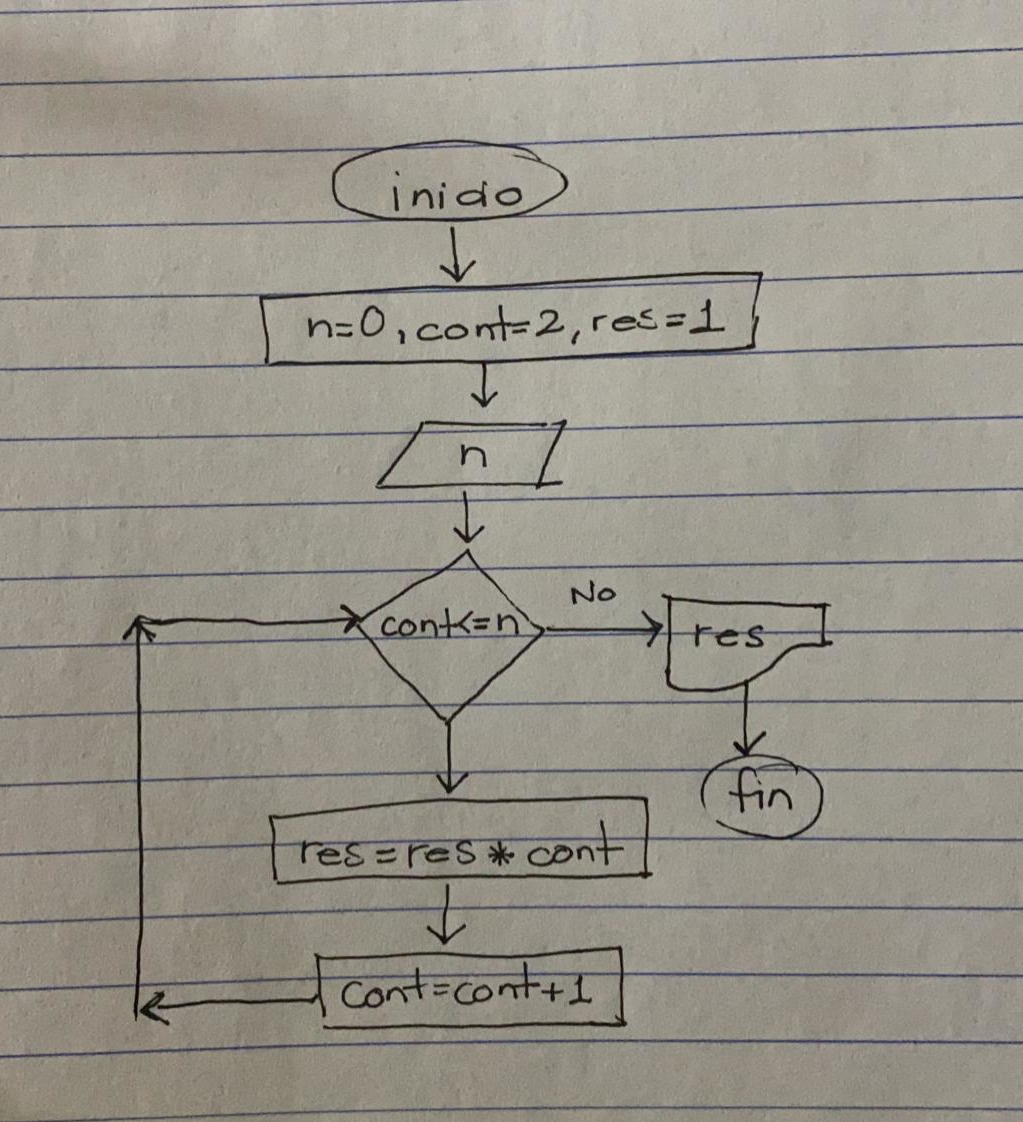 inicio
n=0, cont=2, res=1
n
cont<=n
No
res
fin
res=res * cont
cont=cont+1